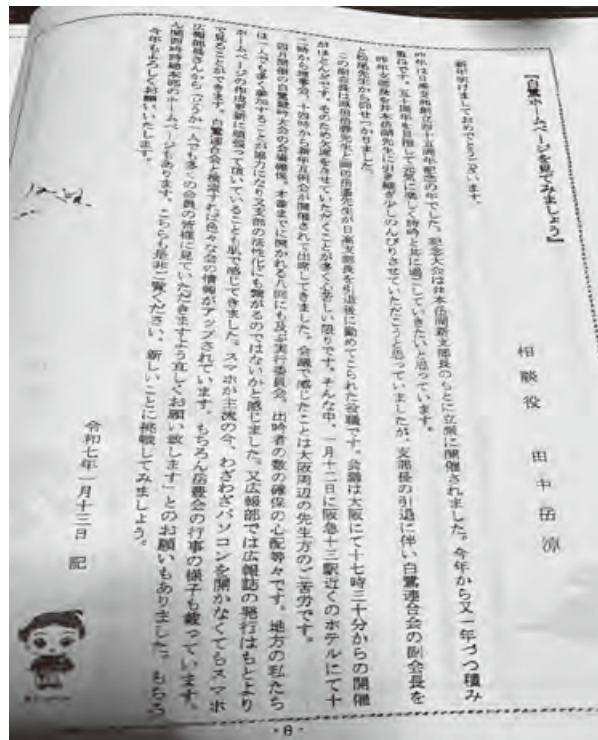 【白鷺ホームページを見てみましょう】
相談役　田中岳涼
新年明けましておめでとうございます。
昨年は日高支部創立四十五周年記念の年でした。記念大会は井本岳閒新支部長のもとに立派に開催されました。今年から又一年づつ積み
重ねです。五十周年を目指して元気に楽しく時時と共に過ごしていきたいと思っています。
昨年支部長を井本岳閒先生に引き継ぎ少しのんびりさせていただこうと思っていましたが、支部長の引退に伴い白鷺連合会の副会長を
と松尾先生から仰せつかりました。
この副会長は城田岳 先生と岡辺岳 先生が日高支部長を引退後に勤めてこられた役職です。会議は大阪にて十七時三十分からの開催
がほとんどです。そのため欠席をさせていただくことが多く心苦しい限りです。そんな中、一月十二日に阪急十三駅近くのホテルにて十
時から理事会、十四時から新年互例会が開催されて出席してきました。会議で感じたことは大阪周辺の先生方のご苦労です。
四月開催の白鷺 吟大会の会場確保、本番までに開かれる八回にも及ぶ実行委員会、出吟者の数の確保の心配等々です。地方の私たち
は一人でも多く参加することが協力になり又支部の活性化にも繋がるのではないかと感じました。又広報部では広報誌の発行はもとより
ホームページの作成更新に頑張って頂いていることも肌で感じてきました。スマホが主流の今、わざわざパソコンを開かなくてもスマホ
で見ることができます。白鷺連合会と検索すれば色々な会の情報がアップされています。もちろん岳 会の行事の様子も載っています。
広報部長さんから「どうか一人でも多くの会員の皆様に見ていただきますよう宜しくお願い致します」とのお願いもありました。もちろ
ん関西吟詩総本部のホームページもあります。こちらも是非ご覧ください。新しいことに挑戦してみましょう。
今年もよろしくお願いいたします。
令和七年一月十三日　記
- 8 -